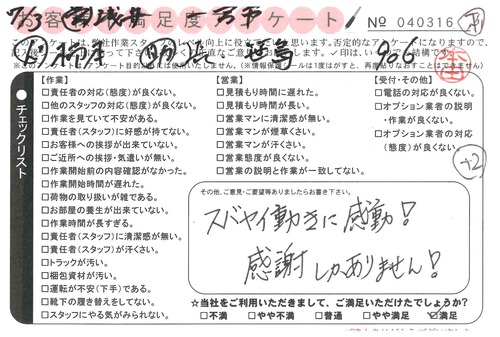 7/23
お客様満足度アンケート No 040316
906
チェックリスト
【作業】
□責任者の対応(態度)が良くない。
□他のスタッフの対応(態度)が良くない。
□作業を見ていて不安がある。
□責任者(スタッフ)に好感が持てない。
□お客様への挨拶が出来ていない。
□ご近所への挨拶・気遣いが無い。
□作業開始前の内容確認がなかった。
□作業開始時間が遅れた。
□荷物の取り扱いが雑である。
□お部屋の養生が出来ていない。
□作業時間が長すぎる。
□責任者(スタッフ)に清潔感が無い。
□責任者(スタッフ)が汗くさい。
□トラックが汚い。
□梱包資材が汚い。
□運転が不安(下手)である。
□靴下の履き替えをしてない。
□スタッフにやる気がみられない。
【営業】
□見積もり時間に遅れた。
□見積もり時間が長い。
□営業マンに清潔感が無い。
□営業マンが煙草くさい。
□営業マンが汗くさい。
□営業態度が良くない。
□営業の説明と作業が一致してない。
【受付・その他】
□電話の対応が良くない。
□オプション業者の説明
・作業が良くない。
□オプション業者の対応
(態度)が良くない。
+2
その他、ご意見・ご要望等ありましたらお書き下さい。
スバヤイ動きに感動!
感謝しかありません!
☆当社をご利用いただきまして、ご満足いただけたでしょうか?
□不満 □やや不満 □普通 □やや満足 ☑満足